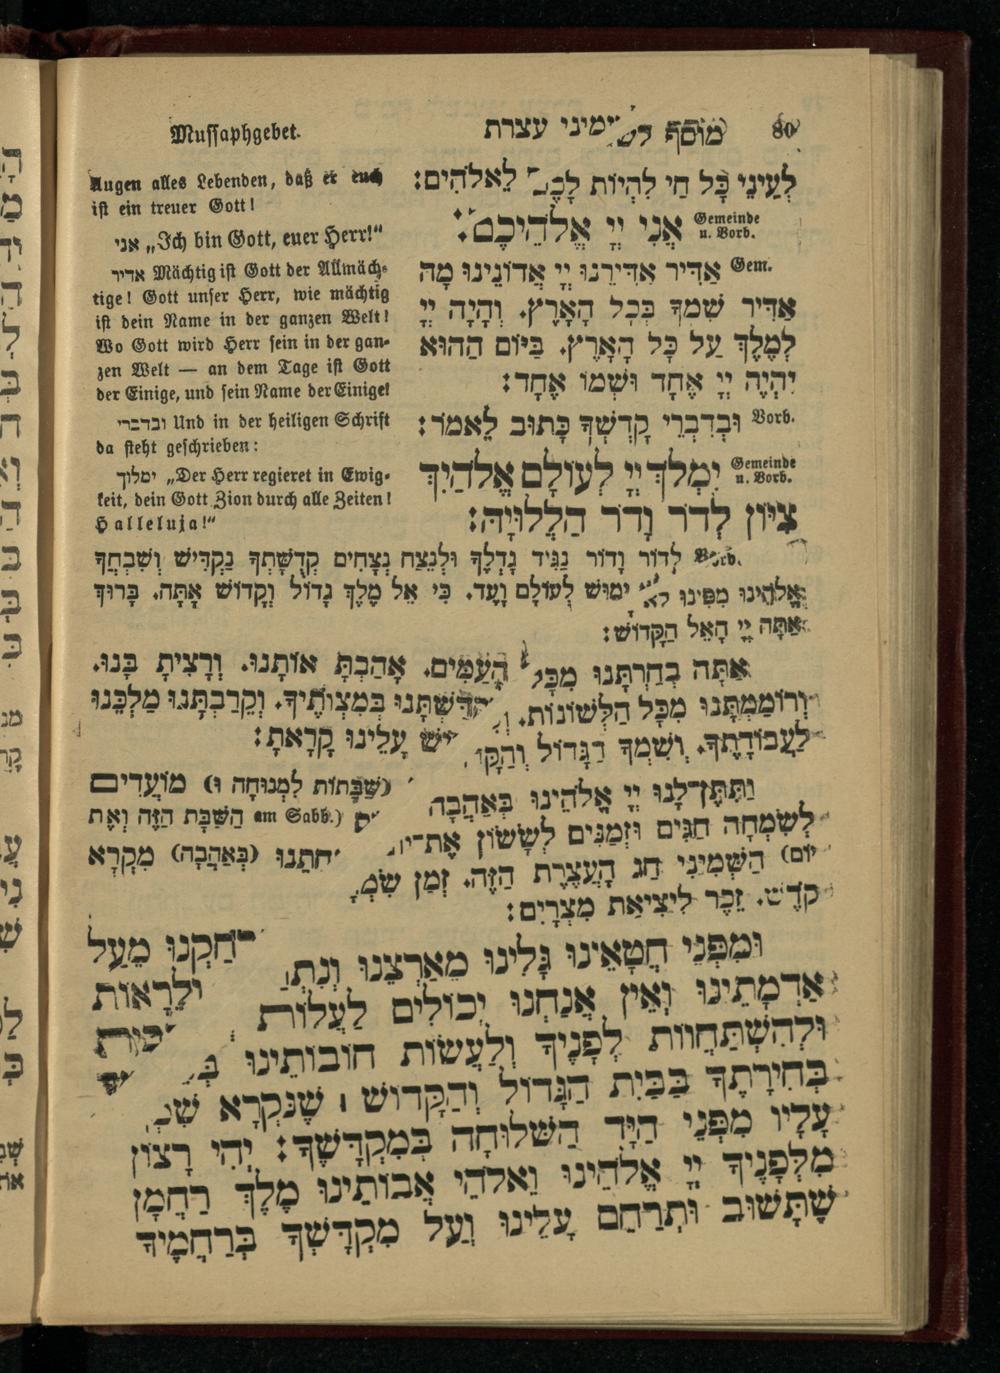 80 מוסף ימיני עצרת Mussaphgebet.
לְעֵינֵי כָּל חַי לִהְיוֹת לָכֶם לֵאלֹהִים:
Gemeinde u. Vorb. אֲנִי יְיָ אֱלֹהֵיכֶם:
Gem. אַדִּיר אַדִּירֵנוּ יְיָ אֲדוֹנֵינוּ מָה
אַדִּיר שִׁמְךָ בְּכָל הָאָרֶץ. וְהָיָה יְיָ
לְמֶלֶךְ עַל כָּל הָאָרֶץ. בַּיּוֹם הַהוּא
יִהְיֶה יְיָ אֶחָד וּשְׁמוֹ אֶחָד:
Vorb. וּבְדִבְרֵי קָדְשְׁךָ כָּתוּב לֵאמֹר:
Gemeinde u. Vorb. יִמְלֹךְ יְיָ לְעוֹלָם אֱלֹהַיִךְ
צִיּוֹן לְדֹר וָדֹר הַלְלוּיָהּ:
Augen alles Lebenden, daß er euch
ist ein treuer Gott!
אני „Ich bin Gott, euer Herr!“
אדיר Mächtig ist Gott der Allmäch-
tige! Gott unser Herr, wie mächtig
ist dein Name in der ganzen Welt!
Wo Gott wird Herr sein in der gan-
zen Welt — an dem Tage ist Gott
der Einige, und sein Name der Einige!
ובדברי Und in der heiligen Schrift
da steht geschrieben:
ימלוך „Der Herr regieret in Ewig-
keit, dein Gott Zion durch alle Zeiten!
Halleluja!“
Vorb. לְדוֹר וָדוֹר נַגִּיד גָּדְלֶךָ וּלְנֵצַח נְצָחִים קְדֻשָּׁתְךָ נַקְדִּישׁ וְשִׁבְחֲךָ
אֱלֹהֵינוּ מִפִּינוּ לֹא יָמוּשׁ לְעוֹלָם וָעֶד. כִּי אֵל מֶלֶךְ גָּדוֹל וְקָדוֹשׁ אָתָּה. בָּרוּךְ
אַתָּה יְיָ הָאֵל הַקָּדוֹשׁ:
אַתָּה בְחַרְתָּנוּ מִכָּל הָעַמִּים. אָהַבְתָּ אוֹתָנוּ. וְרָצִיתָ בָּנוּ.
וְרוֹמַמְתָּנוּ מִכָּל הַלְּשׁוֹנוֹת. וְקִדַּשְׁתָּנוּ בְּמִצְוֹתֶיךָ. וְקֵרַבְתָּנוּ מַלְכֵּנוּ
לַעֲבוֹדָתֶךָ. וְשִׁמְךָ הַגָּדוֹל וְהַקָּדוֹשׁ עָלֵינוּ קָרָאתָ:
וַתִּתֶּן־לָנוּ יְיָ אֱלֹהֵינוּ בְּאַהֲבָה (שַׁבָּתוֹת לִמְנוּחָה וּ) מוֹעֲדִים
לְשִׂמְחָה חַגִּים וּזְמַנִּים לְשָׂשׂוֹן אֶת־ (am Sabb. הַשַּׁבָּת הַזֶּה וְאֶת
יוֹם) הַשְּׁמִינִי חַג הָעֲצֶרֶת הַזֶּה. זְמַן שִׂמְחָתֵנוּ (בְּאַהֲבָה) מִקְרָא
קֹדֶשׁ. זֵכֶר לִיצִיאַת מִצְרָיִם:
וּמִפְּנֵי חֲטָאֵינוּ גָּלִינוּ מֵאַרְצֵנוּ וְנִתְרַחַקְנוּ מֵעַל
אַדְמָתֵינוּ וְאֵין אֲנַחְנוּ יְכוֹלִים לַעֲלוֹת וְלֵרָאוֹת
וּלְהִשְׁתַּחֲווֹת לְפָנֶיךָ וְלַעֲשׂוֹת חוֹבוֹתֵינוּ
בְּחִירָתֶךָ בַּבַּיִת הַגָּדוֹל וְהַקָּדוֹשׁ שֶׁנִּקְרָא
עָלָיו מִפְּנֵי הַיָּד הַשְּׁלוּחָה בְּמִקְדָּשֶׁךָ: יְהִי רָצוֹן
מִלְּפָנֶיךָ יְיָ אֱלֹהֵינוּ וֵאלֹהֵי אֲבוֹתֵינוּ מֶלֶךְ רַחֲמָן
שֶׁתָּשׁוּב וּתְרַחֵם עָלֵינוּ וְעַל מִקְדָּשְׁךָ בְּרַחֲמֶיךָ